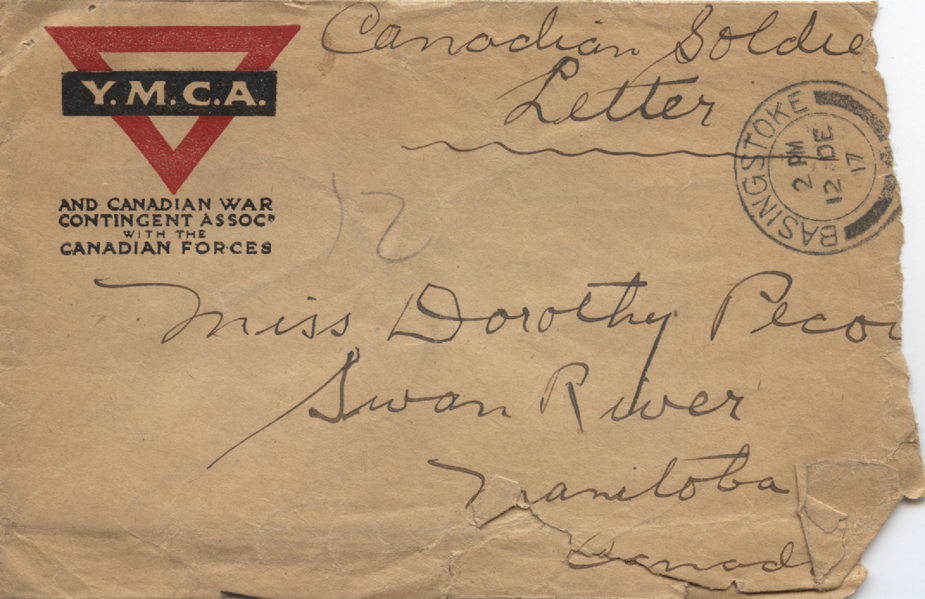 Canadian Soldie
Letter
Y.M.C.A.
AND CANADIAN WAR
CONTINGENT ASSOCN
WITH THE
CANADIAN FORCES
BASINGSTOKE
2 PM
12 DE
17
12
Miss Dorothy Peco
Swan River
Manitoba
Canad